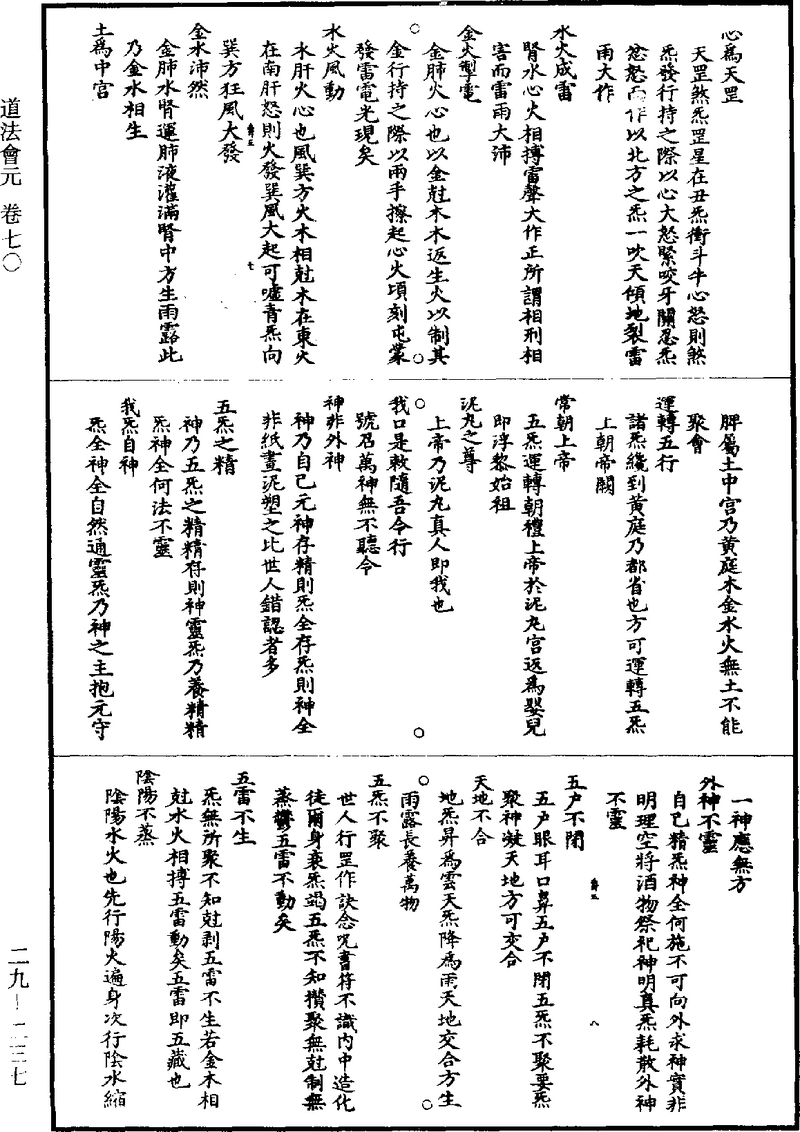 心為天罡
天罡煞炁罡星在丑炁衝斗牛心怒則煞
炁發行持之際以心大怒緊咬牙關忍炁
忿怒而作以北方之炁一吹天傾地裂雷
雨大作
水火成雷
腎水心火相搏雷聲大作正所謂相刑相
害而雷雨大沛
金火掣電
金肺火心也以金尅木木返生火以制其
金行持之際以兩手擦起心火頃刻屯蒙
發雷電光現矣
水火風動
木肝火心也風巽方火木相尅木在東火
在南肝怒則火發巽風大起可噓青炁向
巽方狂風大發
金水沛然
金肺水腎運肺液灌滿腎中方生雨露此
乃金水相生
土為中宮
脾屬土中宮乃黃庭木金水火無土不能
聚會
運轉五行
諸炁纔到黃庭乃都省也方可運轉五炁
上朝帝闕
常朝上帝
五炁運轉朝禮上帝於泥丸宮返為嬰兒
即浮黎始祖
泥丸之尊
上帝乃泥丸真人即我也
我口是敕隨吾令行
號召萬神無不聽令
神非外神
神乃自己元神存精則炁全存炁則神全
非紙畫泥塑之比世人錯認者多
五炁之精
神乃五炁之精精存則神靈炁乃養精精
炁神全何法不靈
我炁自神
炁全神全自然通靈炁乃神之主抱元守
一神應無方
外神不靈
自己精炁神全何施不可向外求神實非
明理空將酒物祭祀神明真炁耗散外神
不靈
五户不閉
五户眼耳口鼻五户不閉五炁不聚要炁
聚神凝天地方可交合
天地不合
地炁昇為雲天炁降為雨天地交合方生
雨露長養萬物
五炁不聚
世人行罡作訣念咒書符不識內中造化
徒爾身衰炁竭五炁不知攢聚無尅制無
蒸鬱五雷不動矣
五雷不生
炁無所聚不知尅剥五雷不生若金木相
尅水火相搏五雷動矣五雷即五藏也
陰陽不蒸
陰陽水火也先行陽火遍身次行陰水縮
道法會元 卷七〇
二九—二三七
七
八